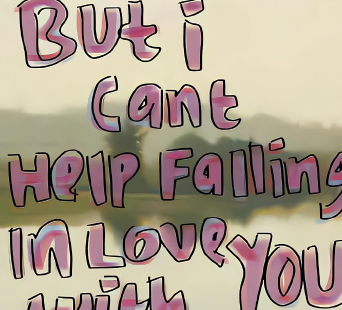 But i
Cant
Help Falling
In Love YOU
with